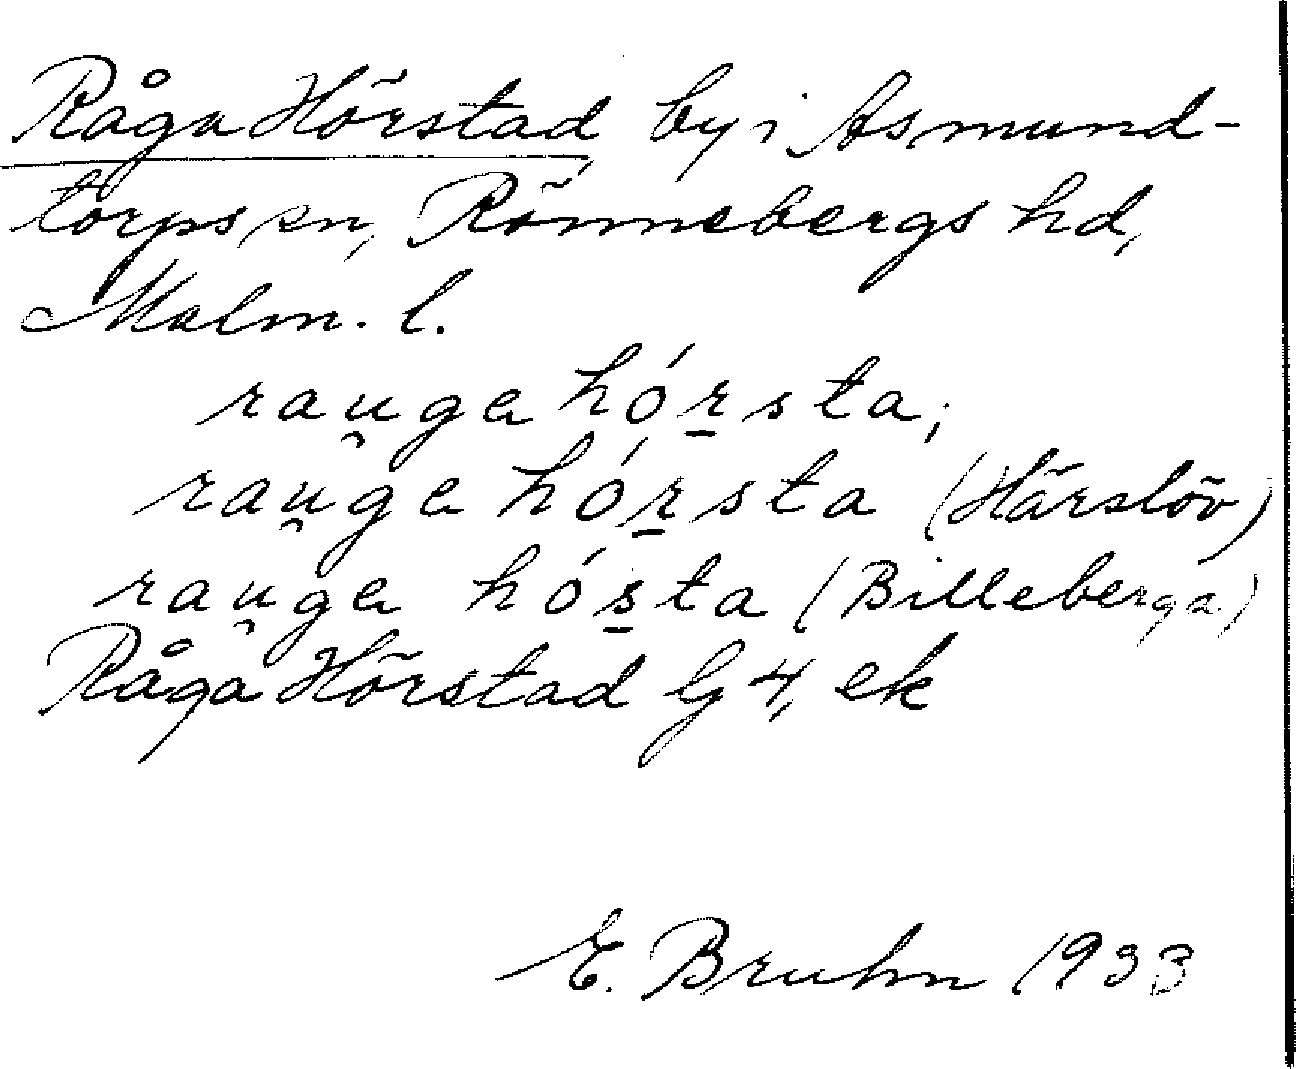 Råga Hörstad, by i Asmund-
torps sn, Rönnebergs hd,
Malm. l.
rau̯ga hórsta,
rau̯ga hórsta (Härslöv)
rau̯ga hósta (Billeberga)
Råga Hörstad G 4, ek
E. Bruhn 1933